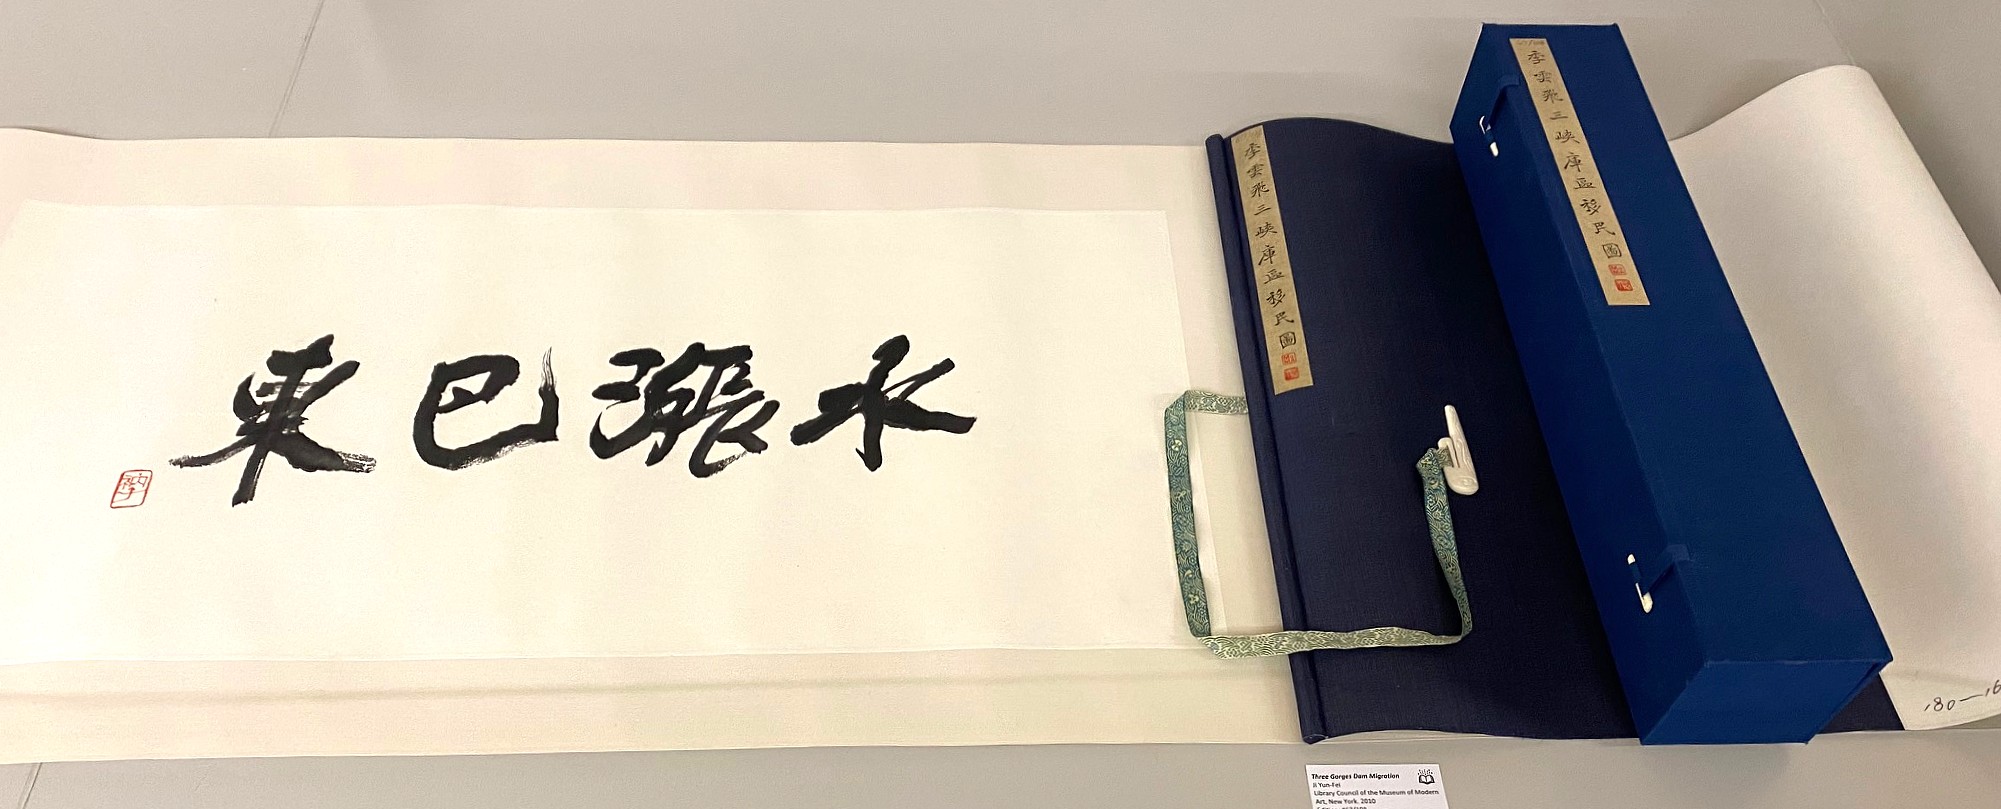 水漲巴東
季雲飛三峽庫區移民圖
季雲飛三峽庫區移民圖
180—16
Three Gorges Dam Migration
Ji Yun-Fei
Library Council of the Museum of Modern
Art, New York, 2010